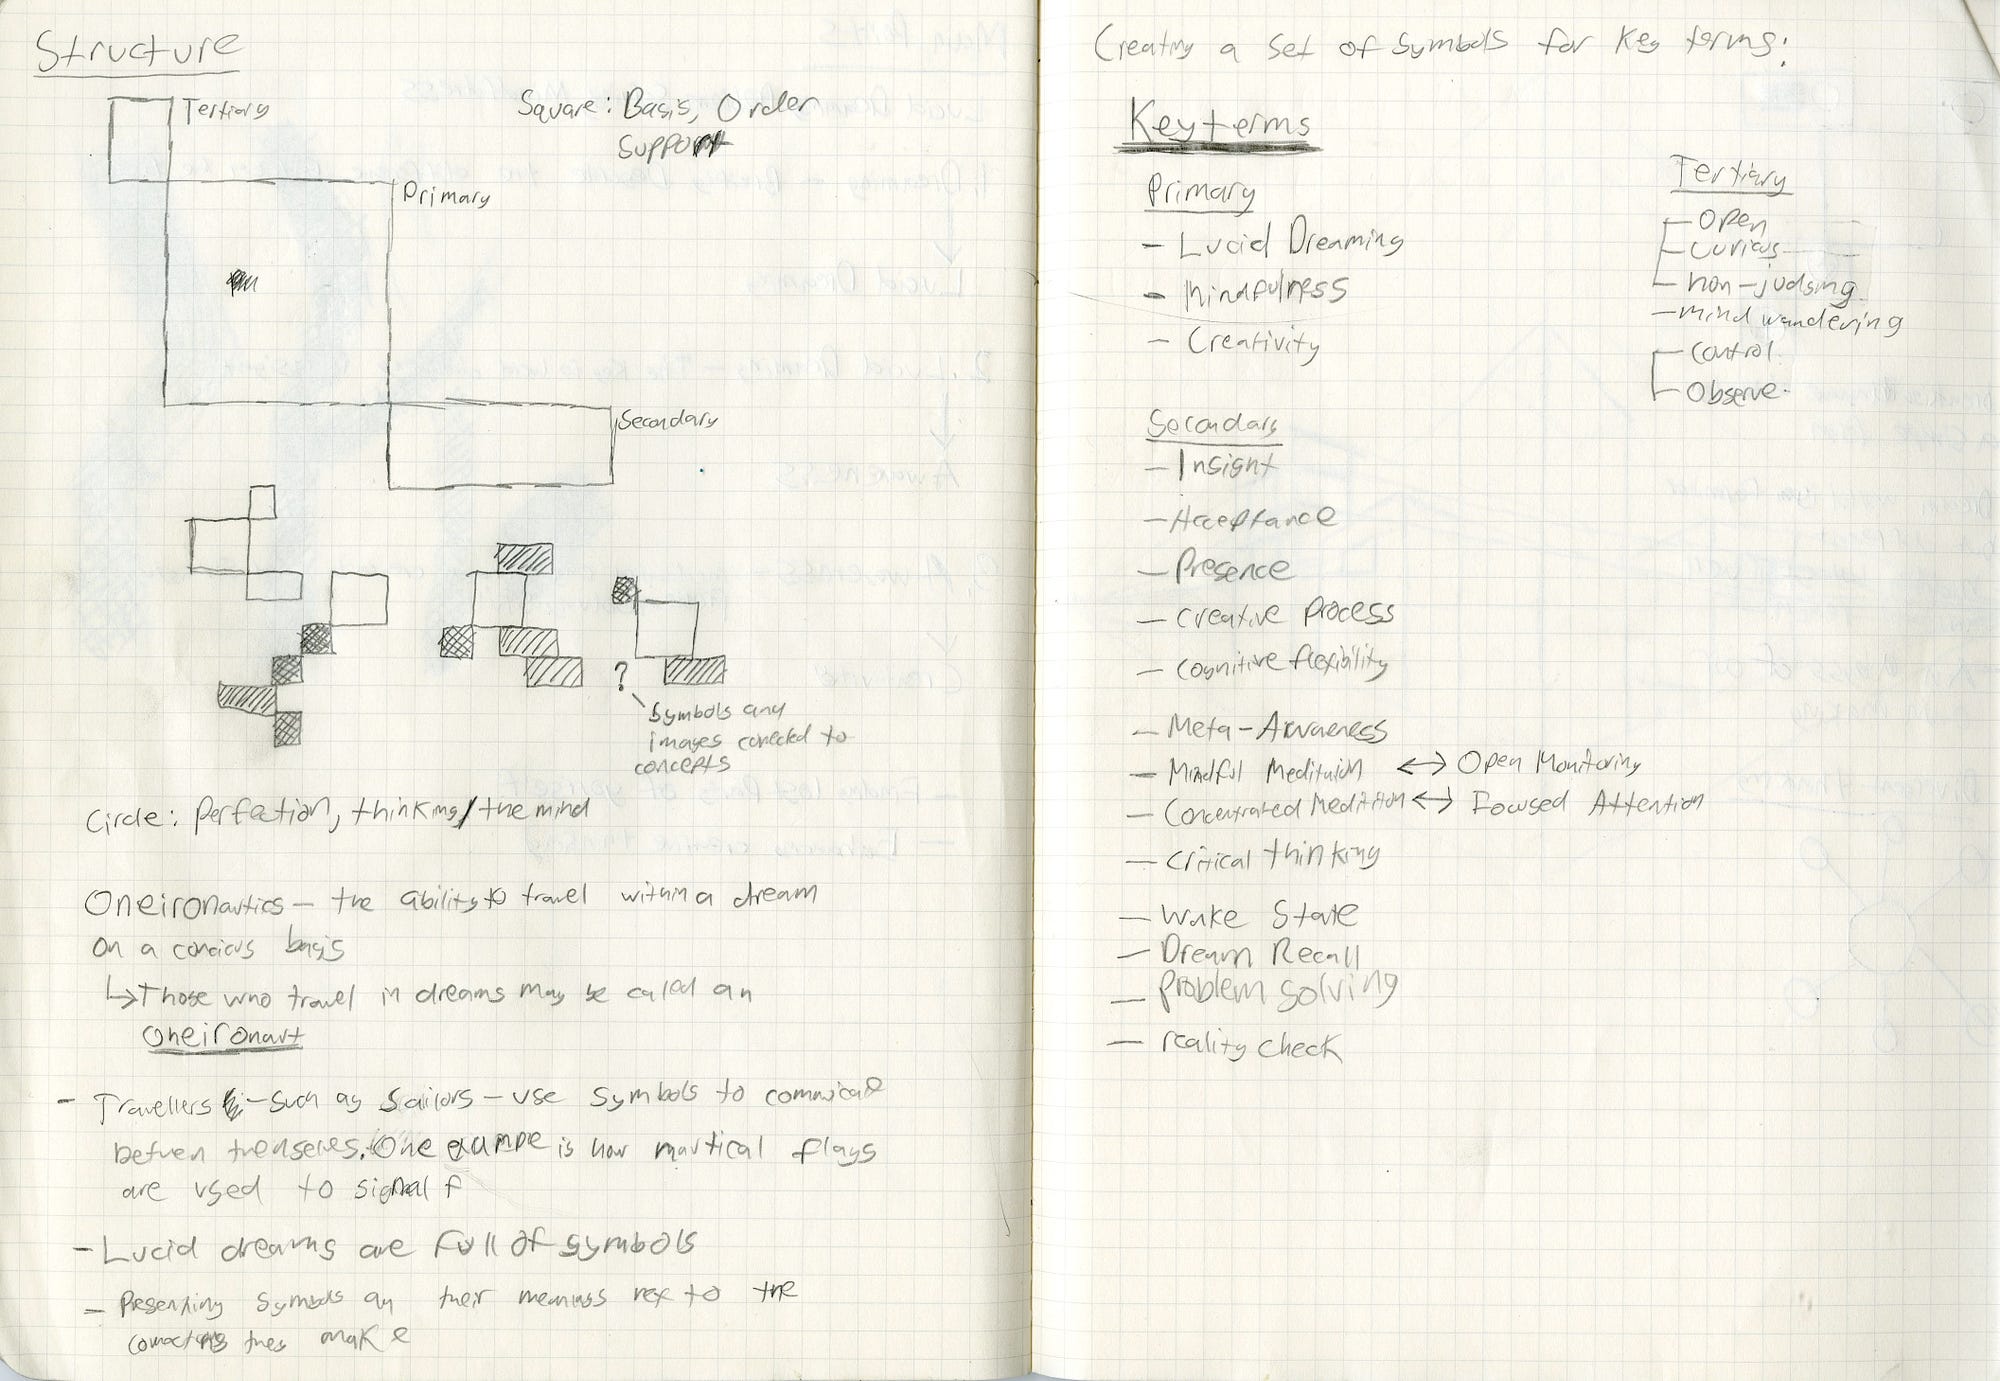 Structure
Tertiary
Square: Basis, Order
Support
Primary
Secondary
?
Symbols and
images conected to
concepts
Circle: Perfection, thinking/the mind
Oneironautics – the ability to travel within a dream
on a concious basis
↳ Those who travel in dreams may be called an
oneironaut
- Travellers – such as sailors – use symbols to
between themselves. One example is how nautical flags
are used to signal f
- Lucid dreams are full of symbols
- Presenting symbols their meanings next to the
they make
Creating a set of symbols for key terms:
Key terms
Primary
- Lucid Dreaming
- Mindfulness
- Creativity
Secondary
- Insight
- Acceptance
- Presence
- Creative Process
- Cognitive flexibility
- Meta-Awareness
- Mindful Meditation ↔ Open Monitoring
- Concentrated Meditation ↔ Focused Attention
- Critical thinking
- Wake State
- Dream Recall
- Problem solving
- reality check
Tertiary
- Open
- Curious
- non-judging
- mind wandering
- Control
- Observe